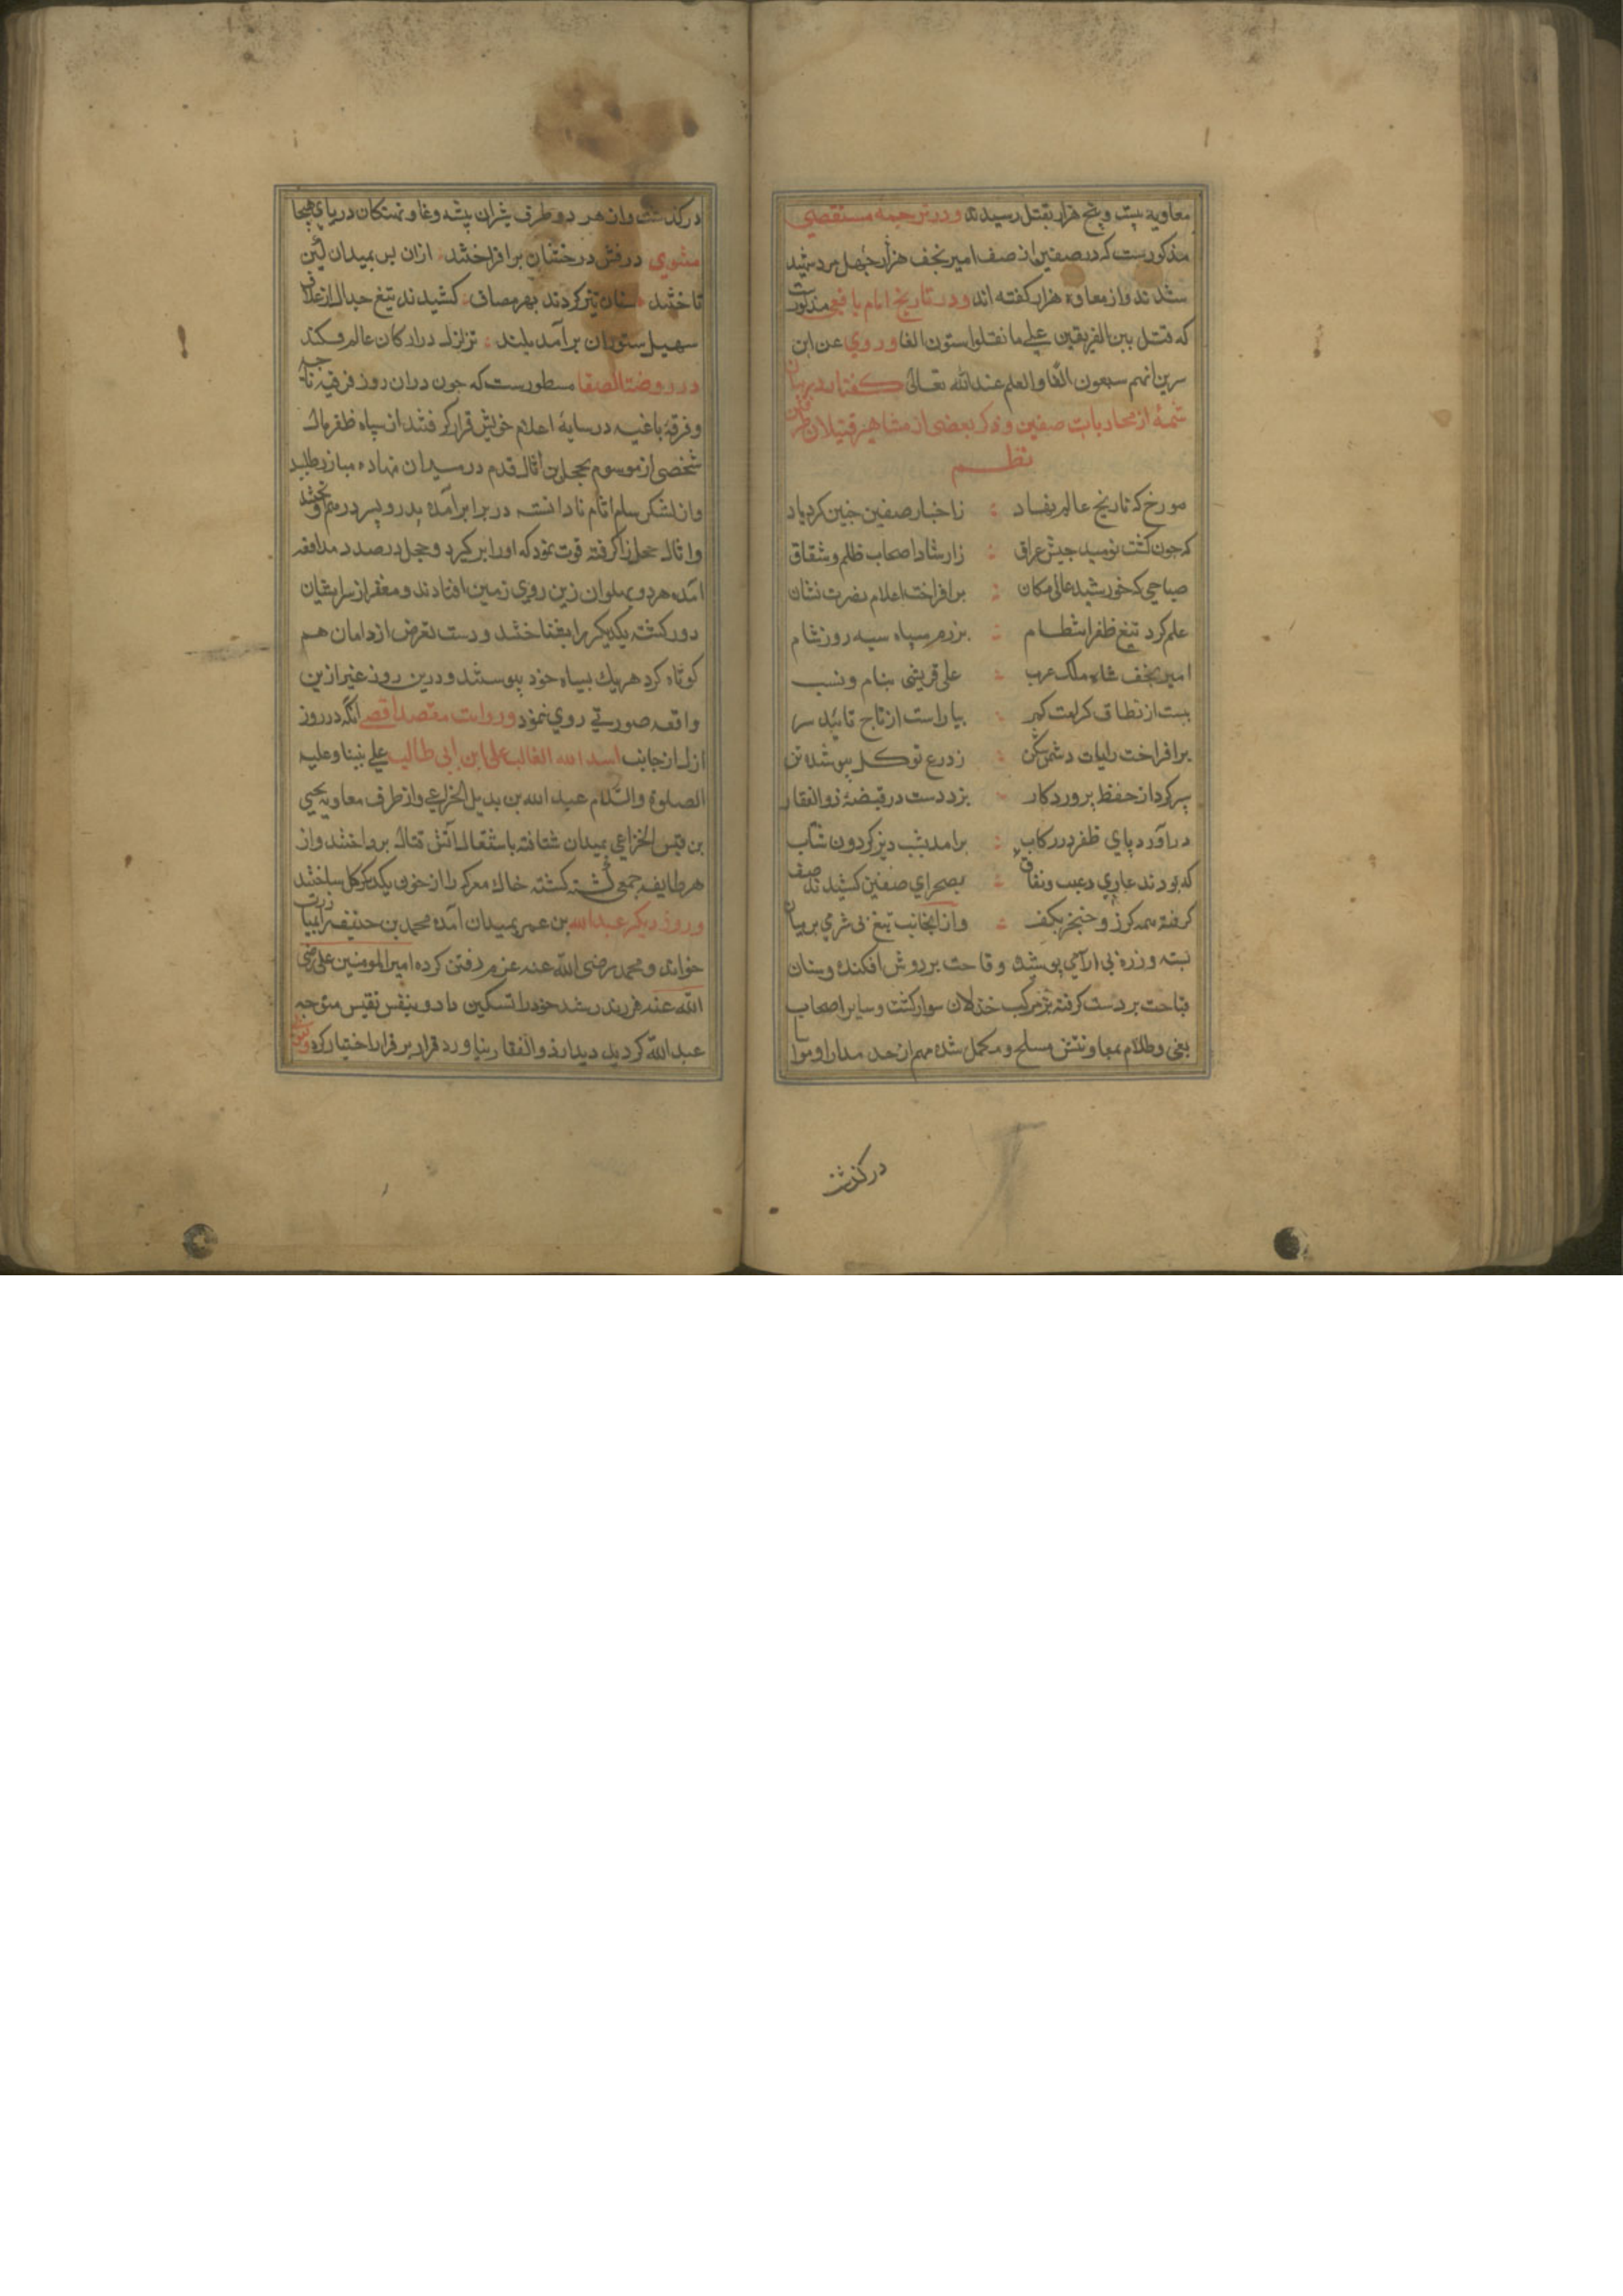 معاویه بیست و پنج هزار بقتل رسیدند و در ترجمه مستقصی
مذکورست که در صفین از صف امیر نجف هزار چهل مرد شهید
شدند و از معاویه هزار کفته اند و در تاریخ امام یافعی مذکورست
که قتل بین الفریقین علی ما نقلوا ستون الفا و روی عن ابن
سرین انهم سبعون الفا والعلم عند الله تعالی کفتار در بیان
شمهٔ از محاربات صفین و ذکر بعضی از مشاهیر قتیلان
نظم
مورخ که تاریخ عالم نهاد : ز اخبار صفین جنین کرد یاد
که جون کشت نومید جیش عراق : ز ارشاد اصحاب ظلم و شقاق
صباحی که خورشید عالی مکان : برافراخت اعلام نصرت نشان
علم کرد تیغ ظفر انتظام : بزرم سپاه سیه روز شام
امیر نجف شاه ملک عرب : علی قریشی بنام و نسب
ببست از نطاق کرامت کمر : بیاراست از تاج تائید سر
برافراخت رایات دشمن شکن : ز درع توکل بپوشید تن
سپر کرد از حفظ پروردکار : بزد دست در قبضهٔ ذوالفقار
درآورد پای ظفر در رکاب : برامد بشب دیز کردون شتاب
که بودند عاری ز عیب و نفاق : بصحرای صفین کشیدند صف
کرفته همه کرز و خنجر بکف : و از انجانب تیغ بی شرمی بر میان
بسته و زره بی ارامی پوشیده و قاحت بر دوش افکنده و سنان
قباحت بر دست کرفته بر مرکب خذلان سوار کشت و سایر اصحاب
بغی و ظلام بمعاونتش مسلح و مکمل شده مهم از حد مدارا و مواسا
در کذشت
در کذشت و از هر دو طرف شیران بیشه وغا و نهنکان دریای هیجا
مثنوی درفش درخشان برافراختند : از ان پس بمیدان کین
تاختند : سنان تیز کردند بهر مصاف : کشیدند تیغ جدال از غلاف
سهیل ستوران برآمد بلند : تزلزل در ارکان عالم فکند
در روضة الصفا مسطورست که جون در ان روز فرقهٔ ناجیه
و فرقهٔ باغیه در سایهٔ اعلام خویش قرار کرفتند از سپاه ظفر مآل
شخصی از موسوم بحجل بن اثال قدم در میدان نهاده مبارز طلبید
و از لشکر شام اثال نادانسته در برابر آمده پدر و پسر در هم آویختند
و اثال حجل را کرفته قوت نمود که او را بر کیرد و حجل در صدد مدافعه
آمده هر دو پهلوان از زین روی زمین افتادند و مغفر از سر ایشان
دور کشته یکدیکر را بشناختند و دست تعرض از دامان هم
کوتاه کرد هر یک بسپاه خود پیوستند و در ین روز غیر ازین
واقعه صورتی روی ننمود و روایت مقصد اقصی آنکه در روز
اول از جانب اسد الله الغالب علی ابن ابی طالب علی نبینا و علیه
الصلوة والسلام عبد الله بن بدیل الخزاعی و از طرف معاویه یحیی
بن قیس الخزاعی بمیدان شتافته باشتعال آتش قتال پرداختند و از
هر طایفه جمعی کشته کشته خاک معرکه را از خون یکدیکر کل ساختند
و روز دیکر عبدالله بن عمر بمیدان آمده محمد بن حنیفه را بمبارزت
خواند و محمد رضی الله عنه عزم رفتن کرده امیر المومنین علی رضی
الله عنه فرزند رشد خود را تسکین داد و بنفس نفیس متوجه
عبدالله کردید دیدار ذوالفقار نیاورد قرار بر فرار اختیار کرد